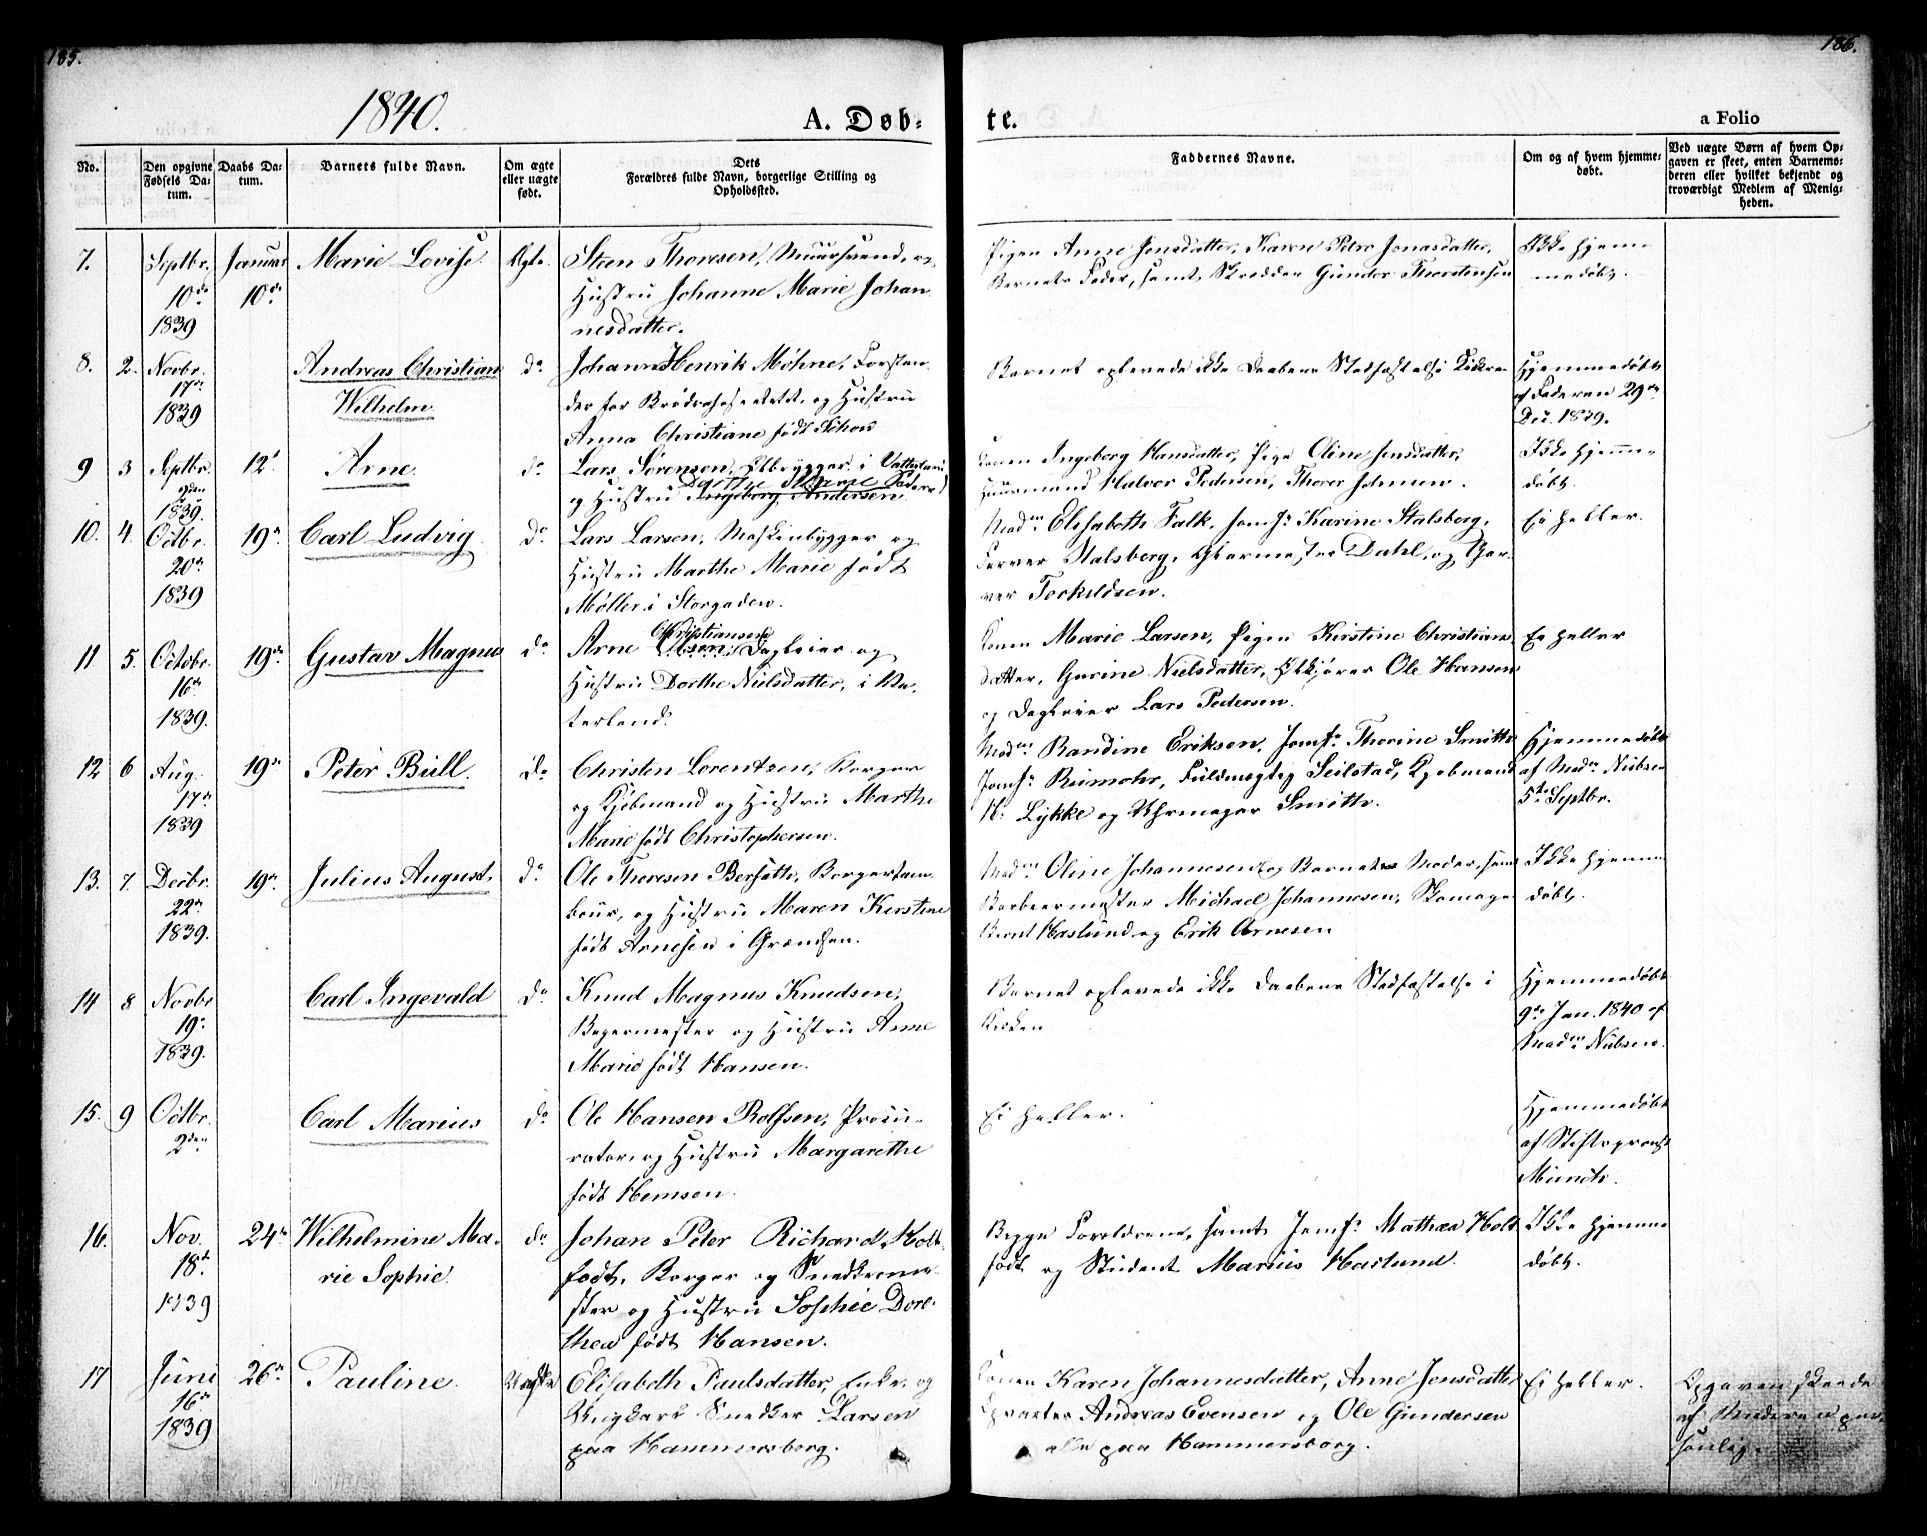 185.
186.
1840.
A. Døb-
te.
a Folio
No.
Den opgivne
Fødsels Da-
tum.
Daabs Da-
tum.
Barnets fulde Navn.
Om ægte
eller uægte
født.
Dets
Forældres fulde Navn, borgerlige Stilling og
Opholdssted.
Faddernes Navne.
Om og af hvem hjemme-
døbt.
Ved uægte Børn af hvem Op-
gaven er skeet, enten Barnemo-
deren eller hvilket bekjendt og
troværdigt Medlem af Menig-
heden.
7.
Septbr.
10de
1839
Januar
10de
Marie Lovise
Ægte.
Steen Thoresen, Muursvend, og
Hustru Johanne Marie Johan
nesdatter.
Pigen Anne Jensdatter, Karen Petra Jonasdatter,
Barnets Fader, samt Skredder Gunder Thorstensen
Ikke hjem-
medøbt.
8. 2.
Novbr.
17de
1839
Andreas Christian
Wilhelm
do
Johann Henrik Möhne, Forstan
der for og Hustru
Anna Christiane født Schou
Barnet oplevede ikke Daabens Stadfæstelse i Kirken
Hjemmedøbt
af Faderen 29de
Dec. 1839.
9 3
Septbr.
2den
1839.
12te
Arne
do
Lars Sørensen, Ølbrygger i Vatterland
Dorthe Marie Peders
og Hustru Ingeborg Andersen
Konen Ingeborg Hansdatter, Pige Oline Jensdatter,
Huusmand Halvor Pedersen, Thorer Johnsen.
Ikke hjemme-
døbt.
10. 4.
Octbr.
20de
1839
19de
Carl Ludvig
do
Lars Larsen, Maskinbygger og
Hustru Marthe Marie født
Møller i Storgaden.
Madm Elisabeth Falk, Jomfr Karine Stalsberg,
Farver Stalsberg, Glarmester Dahl, og Gar-
ver Torkildsen.
Ei heller.
11 5.
Octobr.
16de
1839.
19de
Gustav Magnus
do
Christiansen
Arne Olsen, Dagleier og
Hustru Dorthe Nielsdatter, i Va-
terland.
Konen Marie Larsen, Pigen Kirstine Christians-
datter, Gurine Nielsdatter, Ølkjører Ole Hansen
og Dagleier Lars Pedersen.
Ei heller
12 6
Aug.
17de
1839
19de
Peter Bull.
do
Christen Lorentzen, Borger
og Kjøbmand og Hustru Marthe
Marie født Christophersen.
Madm Randine Eriksen, Jomfr Thorine Smith
Jomfr Rumohr, Fuldmægtig Seilstad, Kjøbmand
N. Lykke og Uhrmager Smith.
Hjemmedøbt
af Madm Nibsen
5te Septbr.
13. 7.
Decbr.
22de
1839.
19de
Julius August.
do
Ole Thoresen Berseth, Borgertam-
bour, og Hustru Maren Kirstine
født Arnesen i Grændsen.
Madm Oline Johannesen og Barnets Moder, samt
Barbeermester Michael Johannesen, Skomager
Bernt Haslund og Erik Arnesen
Ikke hjemme
døbt.
14 8
Novbr
19de
1839.
Carl Ingevald
do
Knud Magnus Knudsen,
Bagermester og Hustru Anne
Marie født Hansen.
Barnet oplevede ikke Daabens Stadfæstelse i
Kirken
Hjemmedøbt
9de Jan. 1840 af
Madm Nibsen.
15. 9
Octbr.
2den
Carl Marius
do
Ole Hansen Rolfsen, Procu-
rator, og Hustru Margarethe
født Hemsen.
Ei heller.
Hjemmedøbt
af Stiftsprovst
Munch.
16.
Nov.
18de
1839
24de
Wilhelmine Ma-
rie Sophie.
do
Johan Peter Richard Holt-
fodt, Borger og Snedkerme-
ster og Hustru Sophie Doro-
thea født Hansen.
Begge Forældrene, samt Jomfr Mathea Holt
fodt og Student Marius Haslund.
Ikke hjemme
døbt.
17
Juni
16de
1839
26de
Pauline.
Uægte
Elisabeth Paulsdatter, Enke, og
Ungkarl Snedker Larsen
paa Hammersborg.
Konen Karen Johannesdatter, Anne Jensdatter
Andreas Evensen og Ole Gundersen
alle paa Hammersborg.
Ei heller.
Opgaven skeede
af Moderen per-
sonlig.